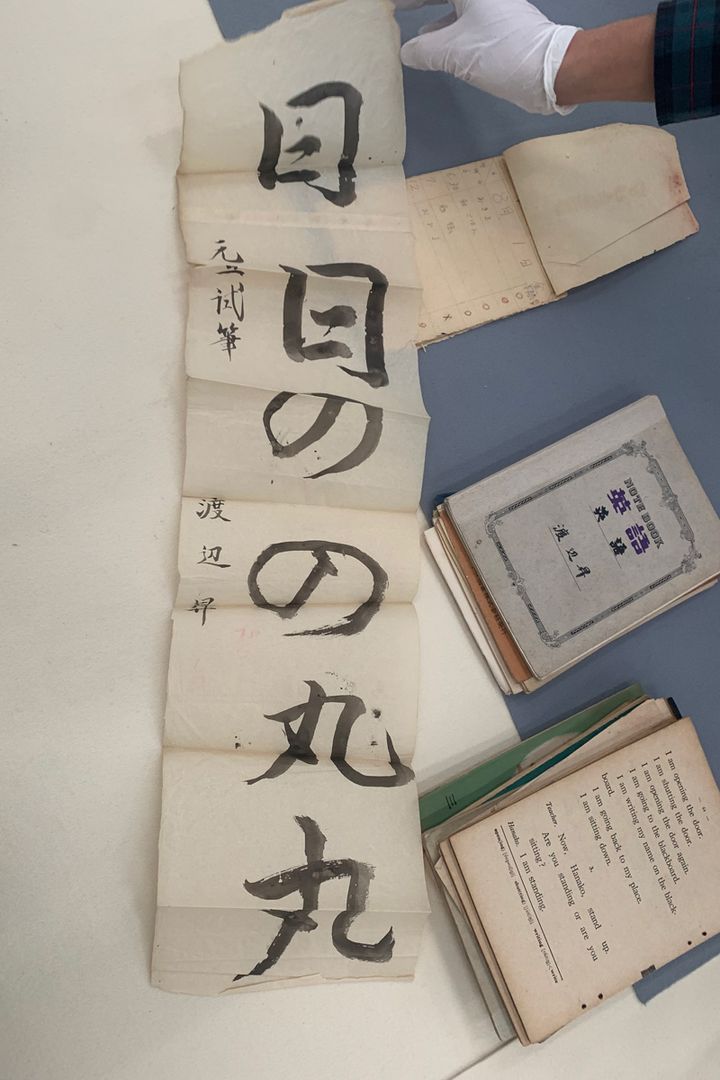 日日のの丸丸
元旦試筆
渡辺昇
NOTE BOOK
英語
英語
渡辺昇
三
I am opening the door.
I am shutting the door.
I am opening the door again.
I am going to the blackboard.
I am writing my name on the black-
board.
I am going back to my place.
I am sitting down.
3.
Teacher. Now, Hanako, stand up.
Are you standing or are you
sitting?
Hanako. I am standing.